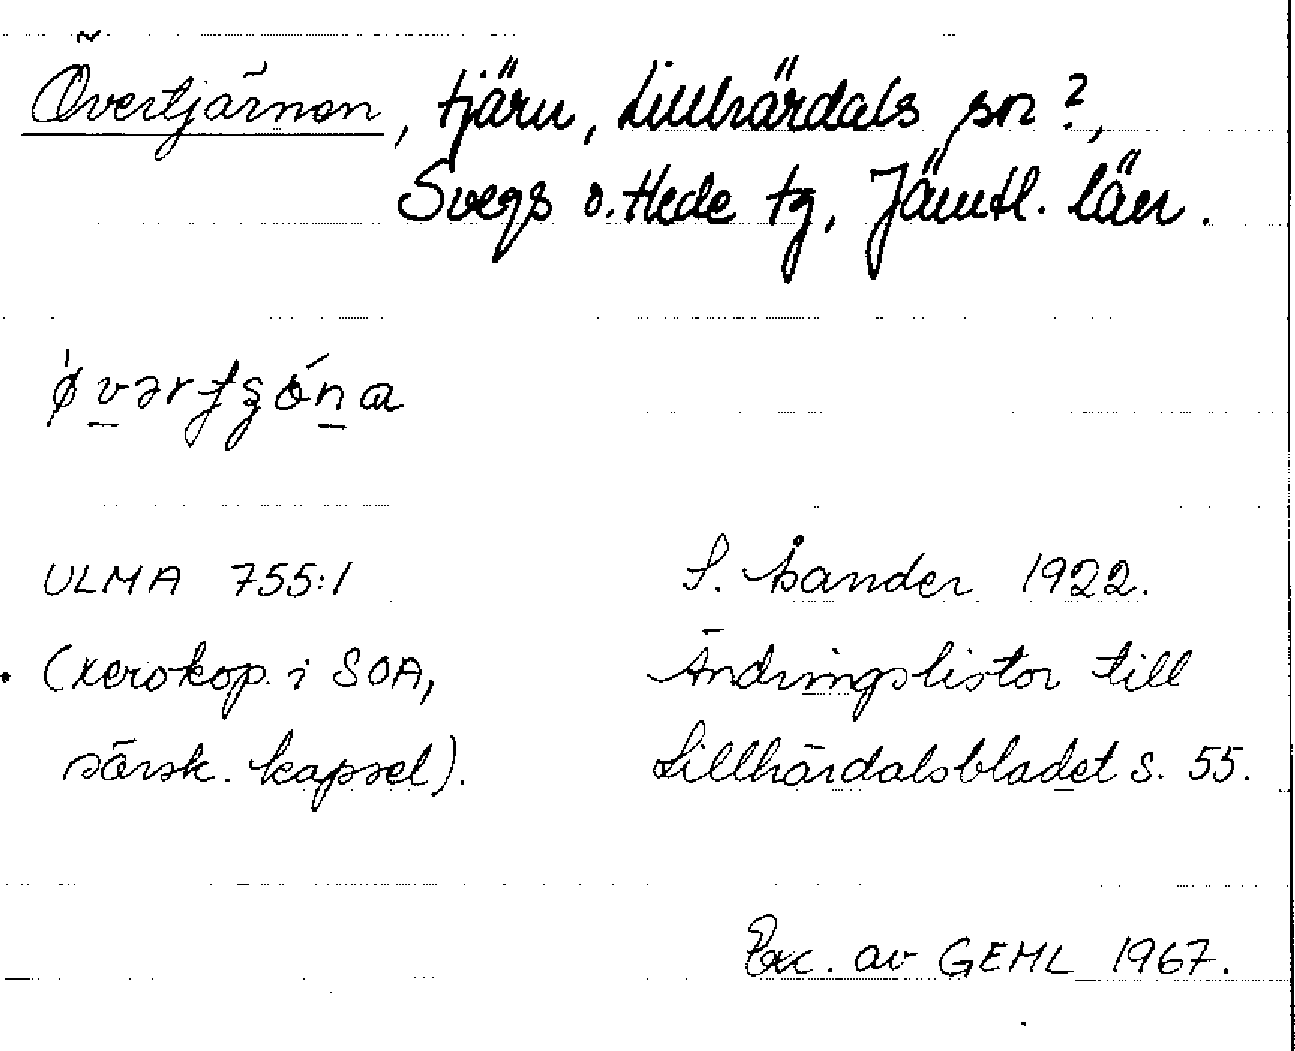 Övertjärnen, tjärn, Lillhärdals sn?,
Svegs o. Hede tg, Jämtl. län.
ULMA 755:1 S. Lander 1922.
(xerokop. i SOA, Ändringslistor till
särsk. kapsel). Lillhärdalsbladet s. 55.
Exc. av GEHL 1967.